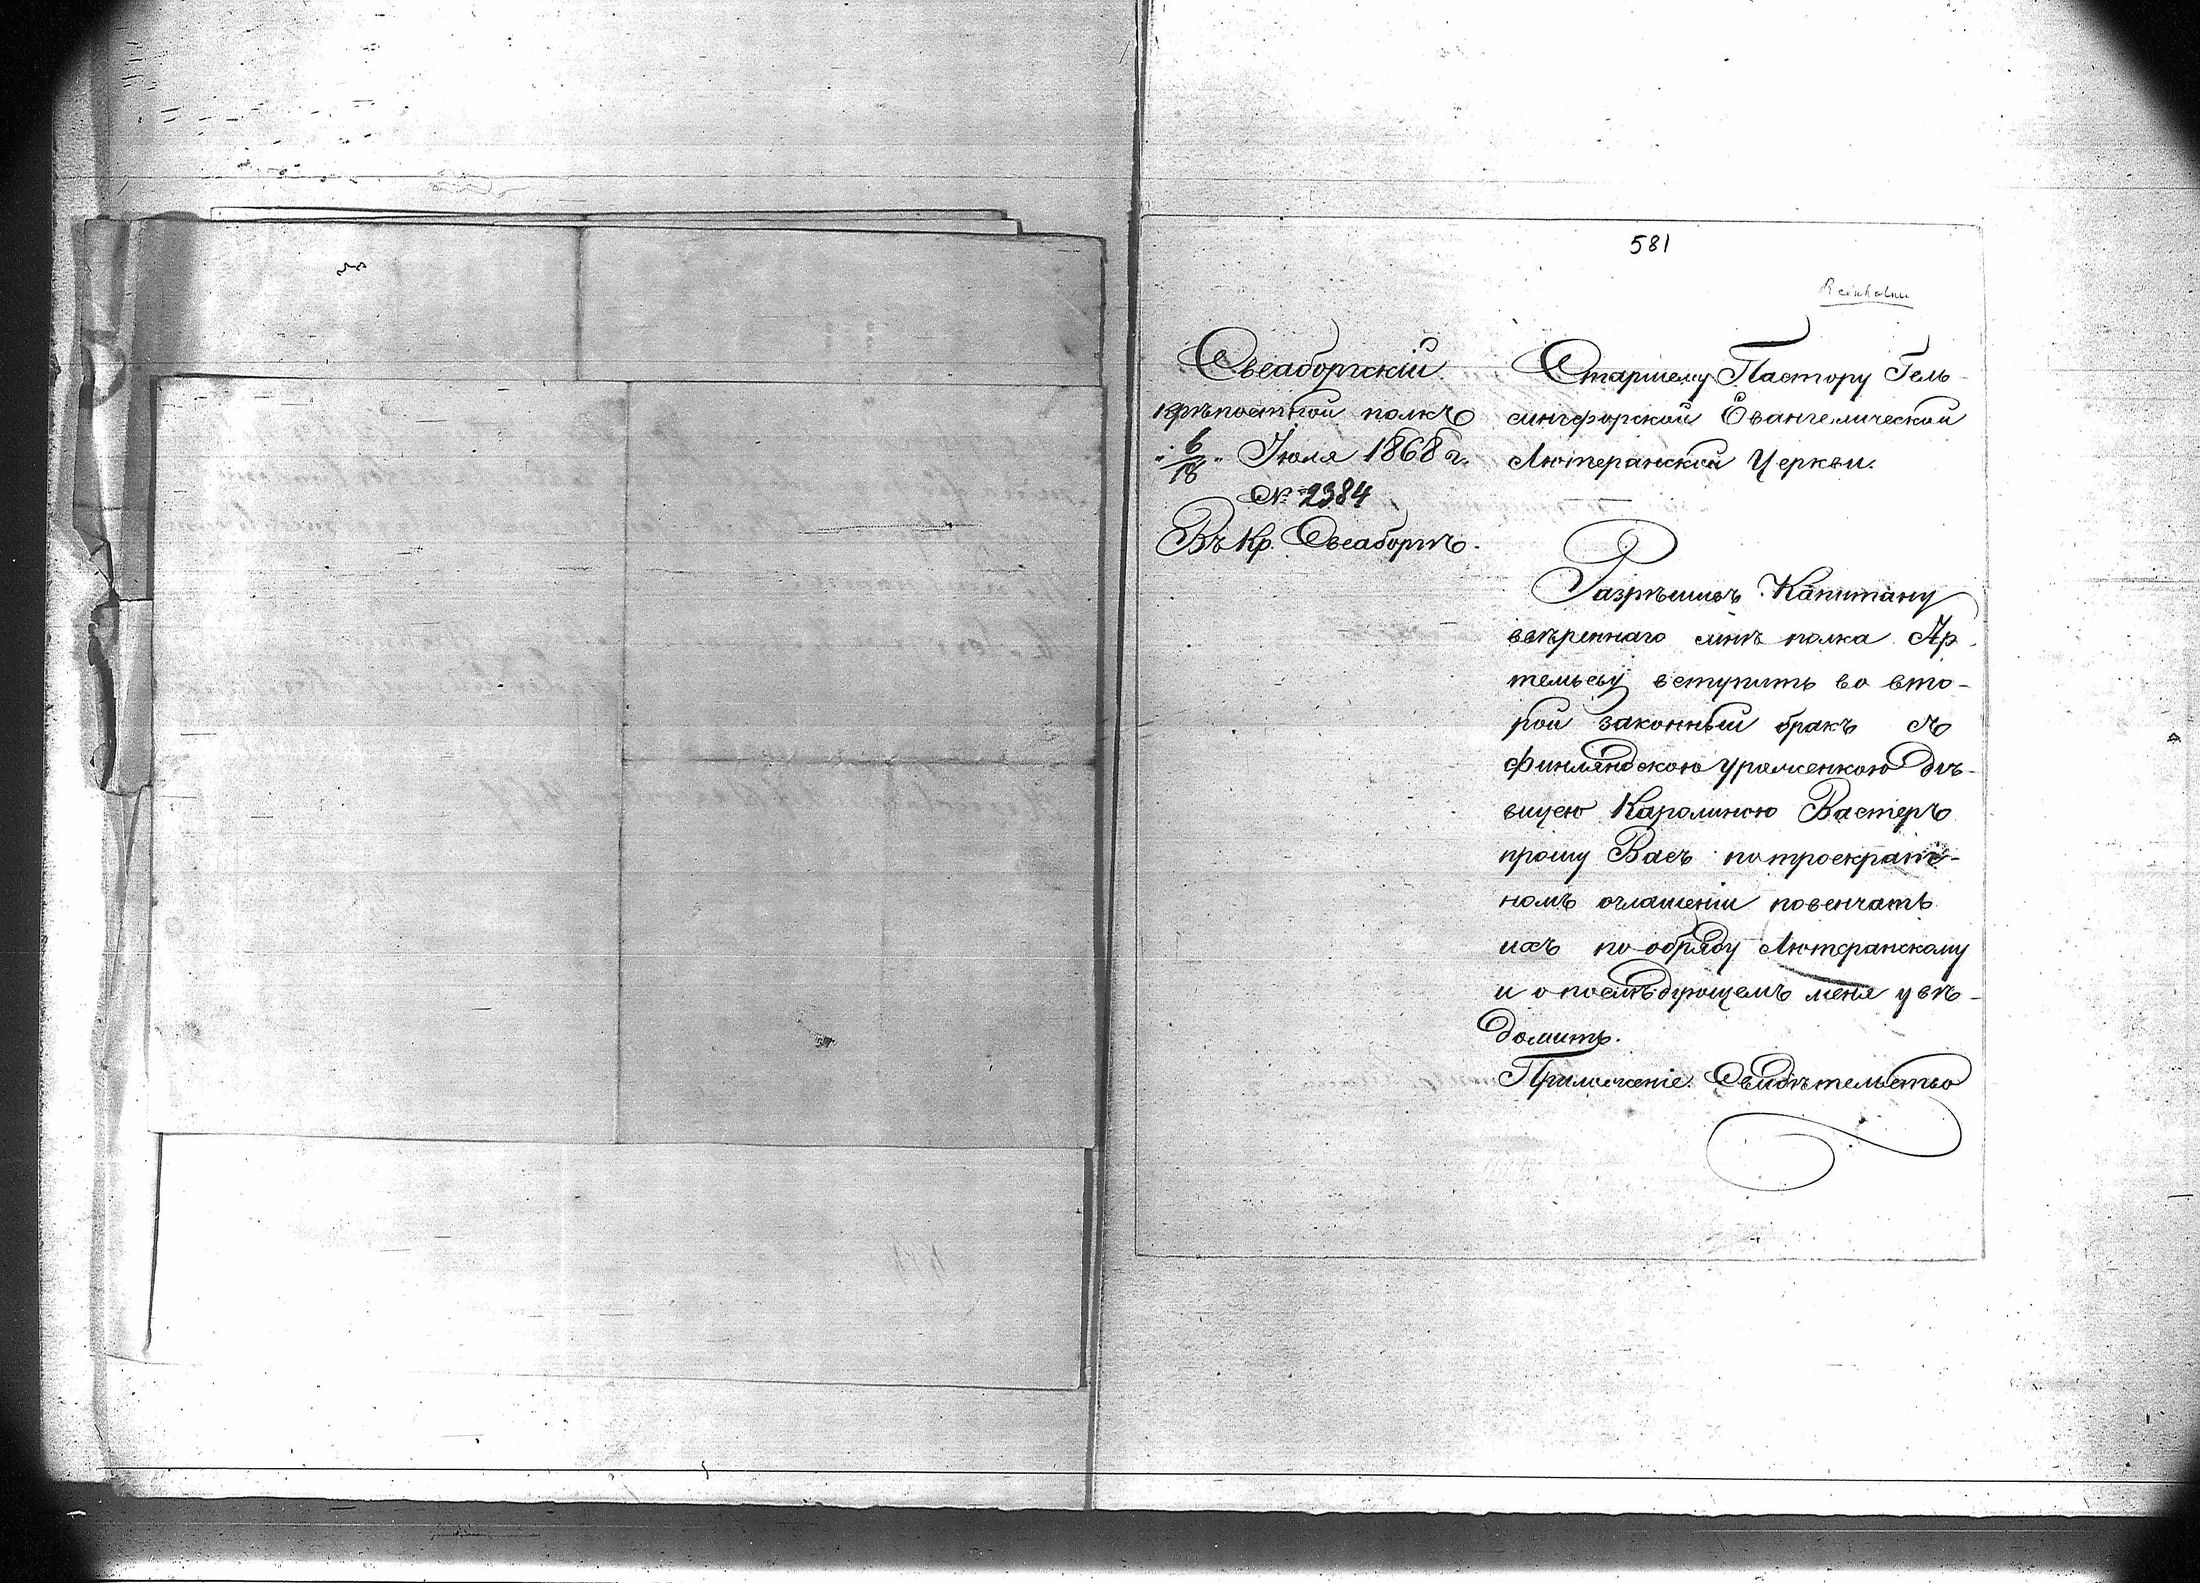 581
Свеаборгскій
крѣпостной полкъ
„6/18„ Іюля 1868 г.
№ 2384
Въ Кр. Свеаборгъ.
Старшему Пастору Гель-
сингфорской Евангелической
Лютеранской Церкви.
Разрѣшивъ Капитану
ввѣреннаго мнѣ полка Ар-
темьеву вступить во вто-
рой законный бракъ съ
финляндскою уроженкою дѣ-
вицею Каролиною Вастеръ
прошу Васъ по троекрат-
номъ оглашеніи повенчать
ихъ по обряду Лютеранскому
и о послѣдующемъ меня увѣ-
домить.
Приложеніе: Свидѣтельство